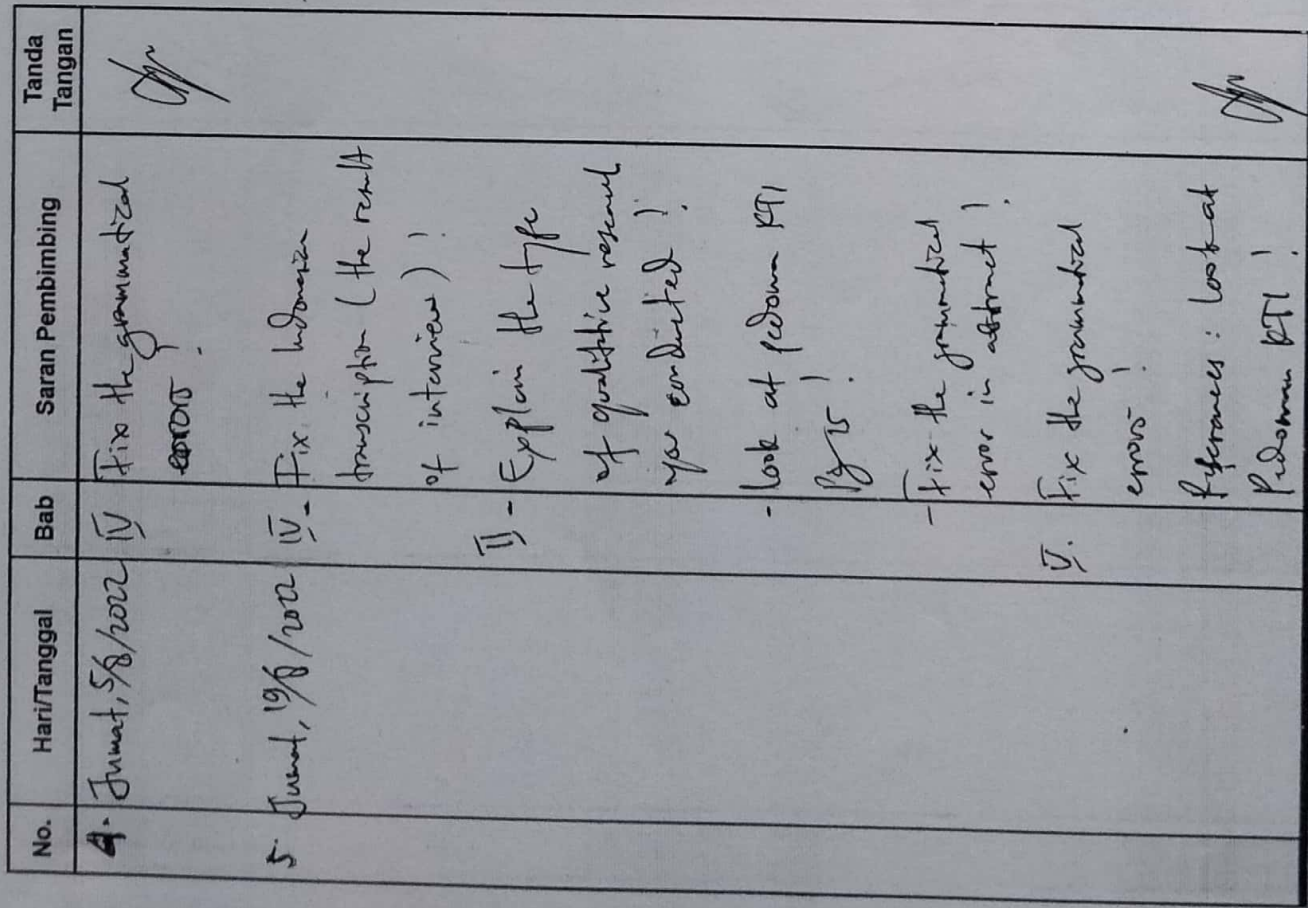 No. Hari/Tanggal Bab Saran Pembimbing Tanda Tangan
4. Jumat, 5/8/2022 IV Fix the grammatical
errors!
5. Jumat, 19/8/2022 IV - Fix the Indonesian
transcription (the result
of interview)!
II - Explain the type
of qualitative research
you conducted!
- Look at pedoman KTI
Pg
- Fix the grammatical
error in abstract!
V. Fix the grammatical
errors!
References: look at
Pedoman KTI!